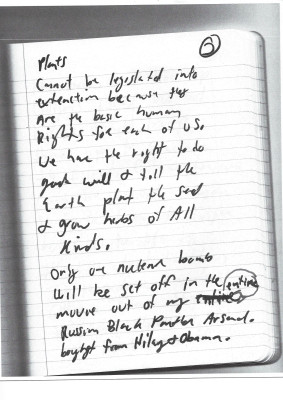 ②
Plants
Cannot be legislated into
extenction because they
Are the basic human
Rights for each of us.
We have the right to do
good will & till the
Earth plant the seed
& grow herbs of All
Kinds.
Only one nuclear bomb
Will be set off in the entire
movie out of my
Russian Black Panther Arsenal.
bought from Hilary & Obama.